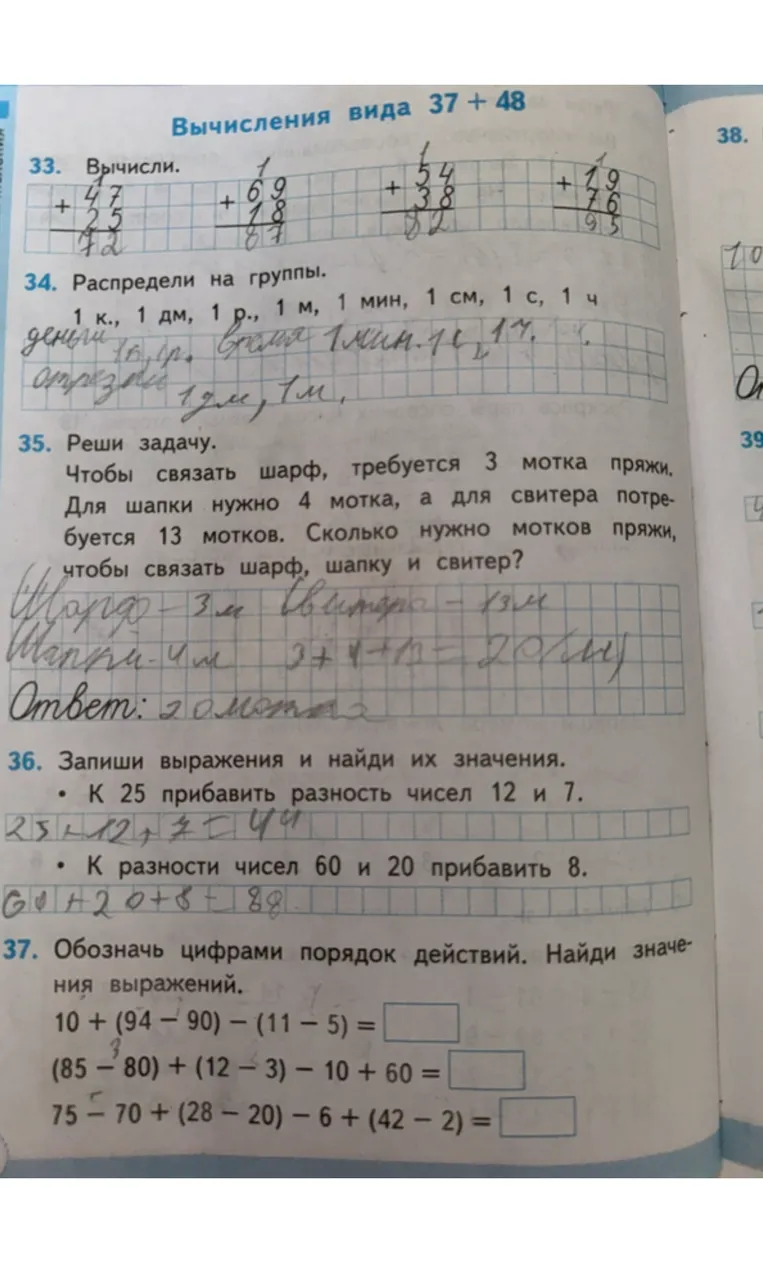 Вычисления вида 37 + 48
38.
33. Вычисли.
1 1 1 1
+ 47 + 69 + 54 + 19
25 18 38 76
72 87 82 95
34. Распредели на группы.
1 к., 1 дм, 1 р., 1 м, 1 мин, 1 см, 1 с, 1 ч
деньги 1к, 1р. время 1 мин. 1с, 1ч.
отрезки 1 дм, 1м.
35. Реши задачу.
39
Чтобы связать шарф, требуется 3 мотка пряжи.
Для шапки нужно 4 мотка, а для свитера потре-
буется 13 мотков. Сколько нужно мотков пряжи,
чтобы связать шарф, шапку и свитер?
Шарф - 3м Свитера - 13м
Шапки - 4м 3+4+13=20(м)
Ответ: 20 мотка
36. Запиши выражения и найди их значения.
• К 25 прибавить разность чисел 12 и 7.
25+12+7=44
• К разности чисел 60 и 20 прибавить 8.
60+20+8=88
37. Обозначь цифрами порядок действий. Найди значе-
ния выражений.
10 + (94 − 90) − (11 − 5) =
(85 − 80) + (12 − 3) − 10 + 60 =
75 − 70 + (28 − 20) − 6 + (42 − 2) =